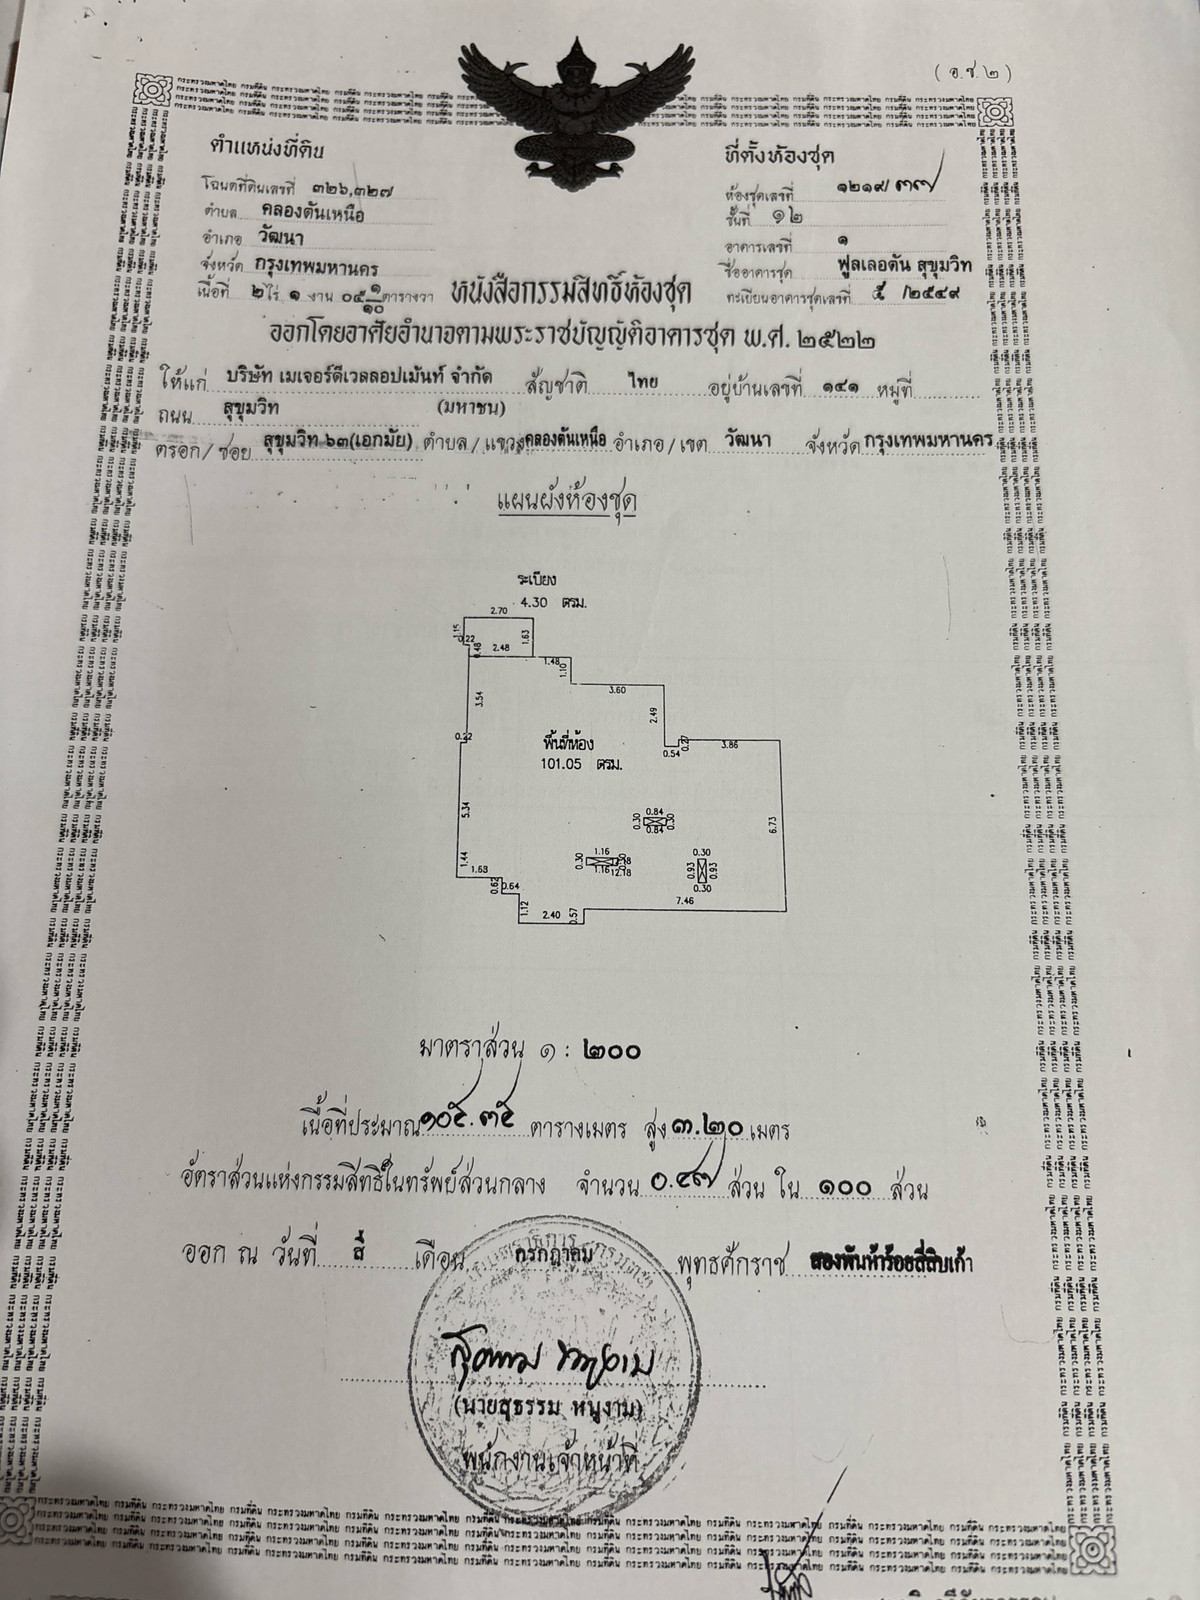 ( อ.ช.๒ )
ตำแหน่งที่ดิน
โฉนดที่ดินเลขที่ ๓๒๖,๓๒๗
ตำบล คลองตันเหนือ
อำเภอ วัฒนา
จังหวัด กรุงเทพมหานคร
เนื้อที่ ๒ ไร่ ๑ งาน ๐๕ ๑/๑๐ ตารางวา
ที่ตั้งห้องชุด
ห้องชุดเลขที่ ๑๒๑๙/๓๗
ชั้นที่ ๑๒
อาคารเลขที่ ๑
ชื่ออาคารชุด ฟูลเลอตัน สุขุมวิท
ทะเบียนอาคารชุดเลขที่ ๕ /๒๕๔๙
หนังสือกรรมสิทธิ์ห้องชุด
ออกโดยอาศัยอำนาจตามพระราชบัญญัติอาคารชุด พ.ศ. ๒๕๒๒
ให้แก่ บริษัท เมเจอร์ดีเวลลอปเม้นท์ จำกัด สัญชาติ ไทย อยู่บ้านเลขที่ ๑๔๑ หมู่ที่
ถนน สุขุมวิท (มหาชน)
ตรอก/ซอย สุขุมวิท ๖๓(เอกมัย) ตำบล/แขวง คลองตันเหนือ อำเภอ/เขต วัฒนา จังหวัด กรุงเทพมหานคร
แผนผังห้องชุด
ระเบียง
4.30 ตรม.
2.70
1.15
0.22
0.48
2.48
1.63
1.48
1.10
3.60
3.54
2.49
0.22
พื้นที่ห้อง
101.05 ตรม.
0.54
0.27
3.86
5.34
6.73
0.30
0.84
0.84
0.30
0.30
1.16
1.16
12.18
0.30
0.93
0.93
0.30
1.44
1.63
0.62
0.64
1.12
2.40
0.57
7.46
มาตราส่วน ๑ : ๒๐๐
เนื้อที่ประมาณ ๑๐๕.๓๕ ตารางเมตร สูง ๓.๒๐ เมตร
อัตราส่วนแห่งกรรมสิทธิ์ในทรัพย์ส่วนกลาง จำนวน ๐.๔๗ ส่วน ใน ๑๐๐ ส่วน
ออก ณ วันที่ สี่ เดือน กรกฎาคม พุทธศักราช สองพันห้าร้อยสี่สิบเก้า
(นายสุธรรม หนูงาม)
พนักงานเจ้าหน้าที่
กระทรวงมหาดไทย กรมที่ดิน